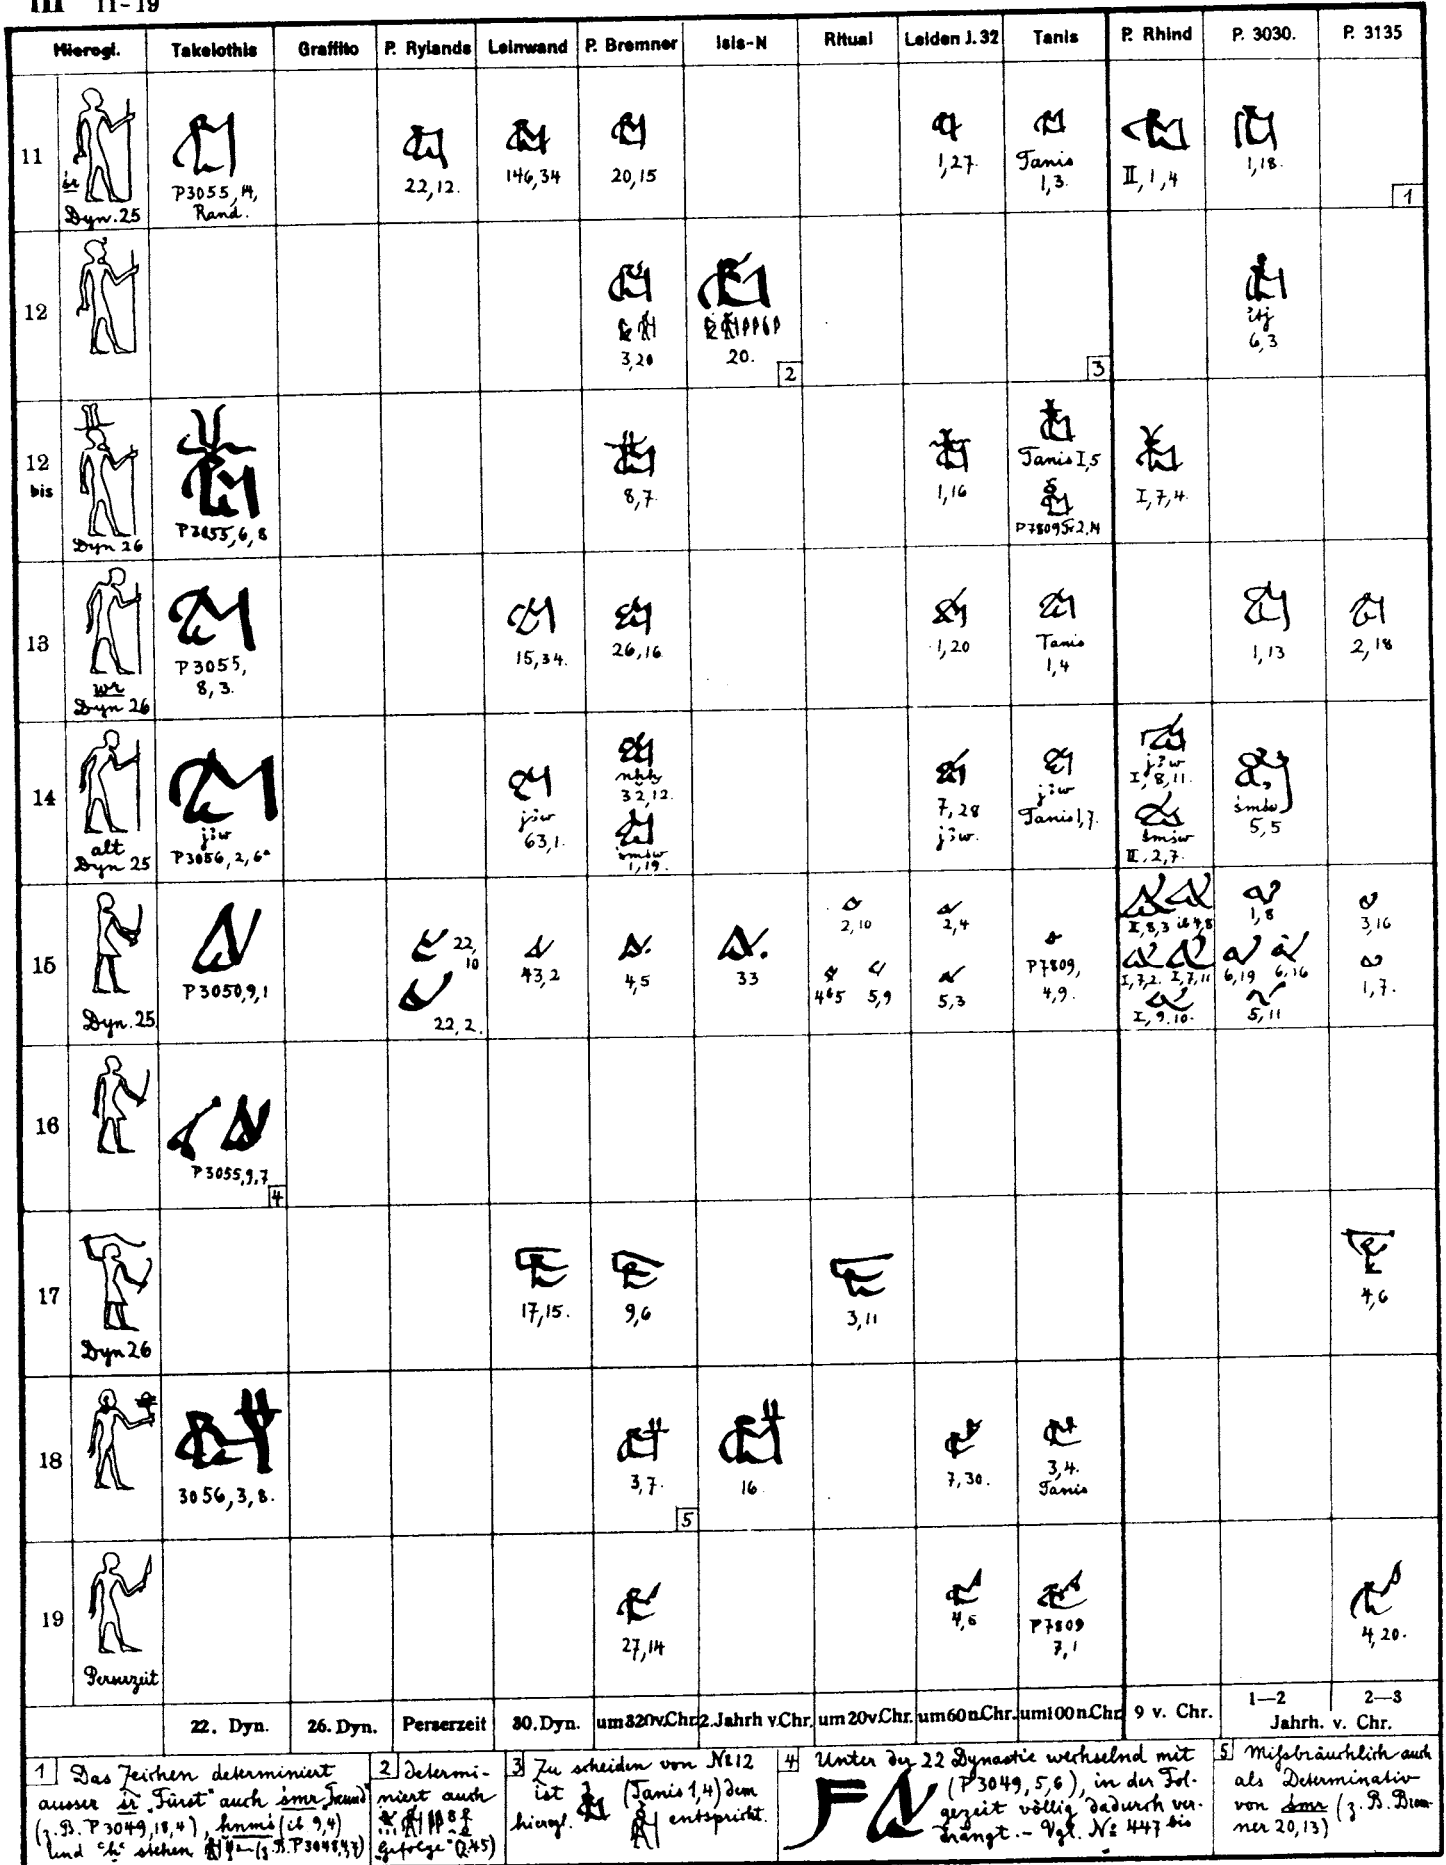 III 11-19
Hierogl. Takelothis Graffito P. Rylands Leinwand P. Bremner Isis-N Ritual Leiden J. 32 Tanis P. Rhind P. 3030. P. 3135
11
śr
Dyn. 25
P3055, 14,
Rand.
22,12.
146,34
20,15
1,27.
Tanis
1,3.
II, 1, 4
1,18.
1
12
3,20
20.
2
3
itj
6,3
12
bis
Dyn 26
P3055,6,8
8,7.
1,16
Tanis I,5
I,7,4.
13
wr
Dyn 26
P3055,
8,3.
15,34.
26,16
1,20
Tanis
1,4
1,13
2,18
14
alt
Dyn 25
jꜣw
P3056, 2, 6
jꜣw
63,1.
nḥḥ
32,12.
śmśw
1,19.
7,28
jꜣw.
jꜣw
Tanis 1,7.
jꜣw
I, 8, 11.
śmśw
II, 2, 7.
śmśw
5,5
15
Dyn. 25
P3050,9,1
22,
10
22,2.
43,2
4,5
33
2,10
5,9
2,4
5,3
P7809,
4,9.
I,8,3
I,7,2. I,7,11
I, 9, 10.
1,8
6,19 6,16
5,11
3,16
1,7.
16
P3055,9,7
4
17
Dyn 26
17,15.
9,6
3,11
4,6
18
3056,3,8.
3,7.
5
16
7,30.
3,4.
Tanis
19
Perserzeit
27,14
4,6
P7809
7,1
4,20.
22. Dyn. 26. Dyn. Perserzeit 30. Dyn. um 320 v.Chr. 2. Jahrh v.Chr. um 20 v.Chr. um 60 n.Chr. um 100 n.Chr. 9 v. Chr. 1—2 2—3
Jahrh. v. Chr.
1 Das Zeichen determiniert
ausser śr „Fürst" auch śmr „Freund"
(z.B. P3049,18,4), ẖnmś (ib 9,4)
und stehen
2 Determi-
niert auch
„Gefolge" (2,45)
3 Zu scheiden von № 12
ist (Tanis 1,4) dem
hierogl. entspricht.
4 Unter der 22 Dynastie wechselnd mit
(P3049,5,6), in der Fol-
gezeit völlig dadurch ver-
drängt. – Vgl. № 447 bis
5 Mißbräuchlich auch
als Determinativ
von śmr (z.B. Brem-
ner 20,13)